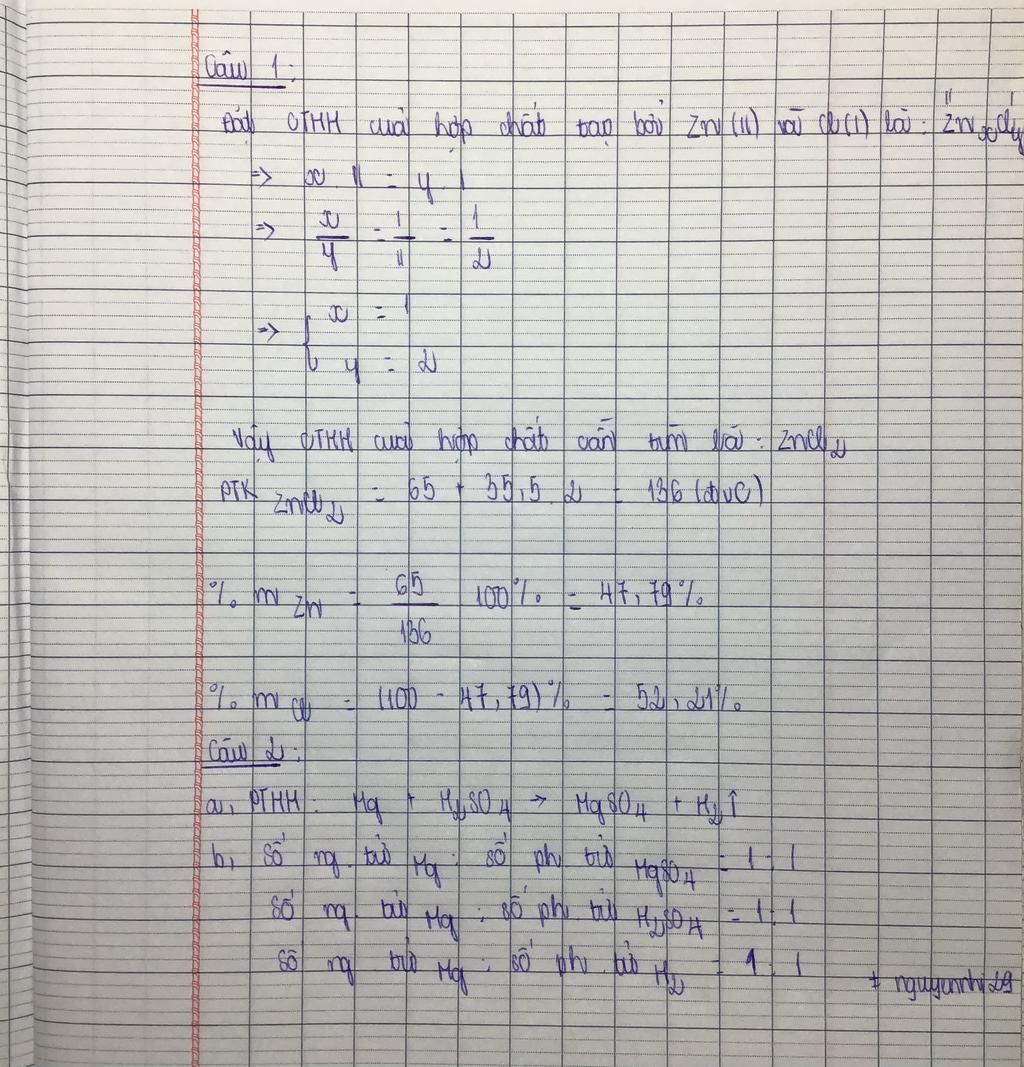 Câu 1:
Đặt CTHH của hợp chất tạo bởi Zn (II) và Cl (I) là: ZnxCly
II I
=> x . II = y . I
=> x/y = I/II = 1/2
=> { x = 1
y = 2
Vậy CTHH của hợp chất cần tìm là: ZnCl2
PTK ZnCl2 = 65 + 35,5 . 2 = 136 (đvC)
% m Zn = 65/136 . 100% = 47,79%
% m Cl = (100 - 47,79)% = 52,21%
Câu 2:
a, PTHH: Mg + H2SO4 → MgSO4 + H2↑
b, Số ng. tử Mg : số ph. tử MgSO4 = 1 : 1
Số ng. tử Mg : số ph. tử H2SO4 = 1 : 1
Số ng. tử Mg : số ph. tử H2 = 1 : 1
# nguyannhi29